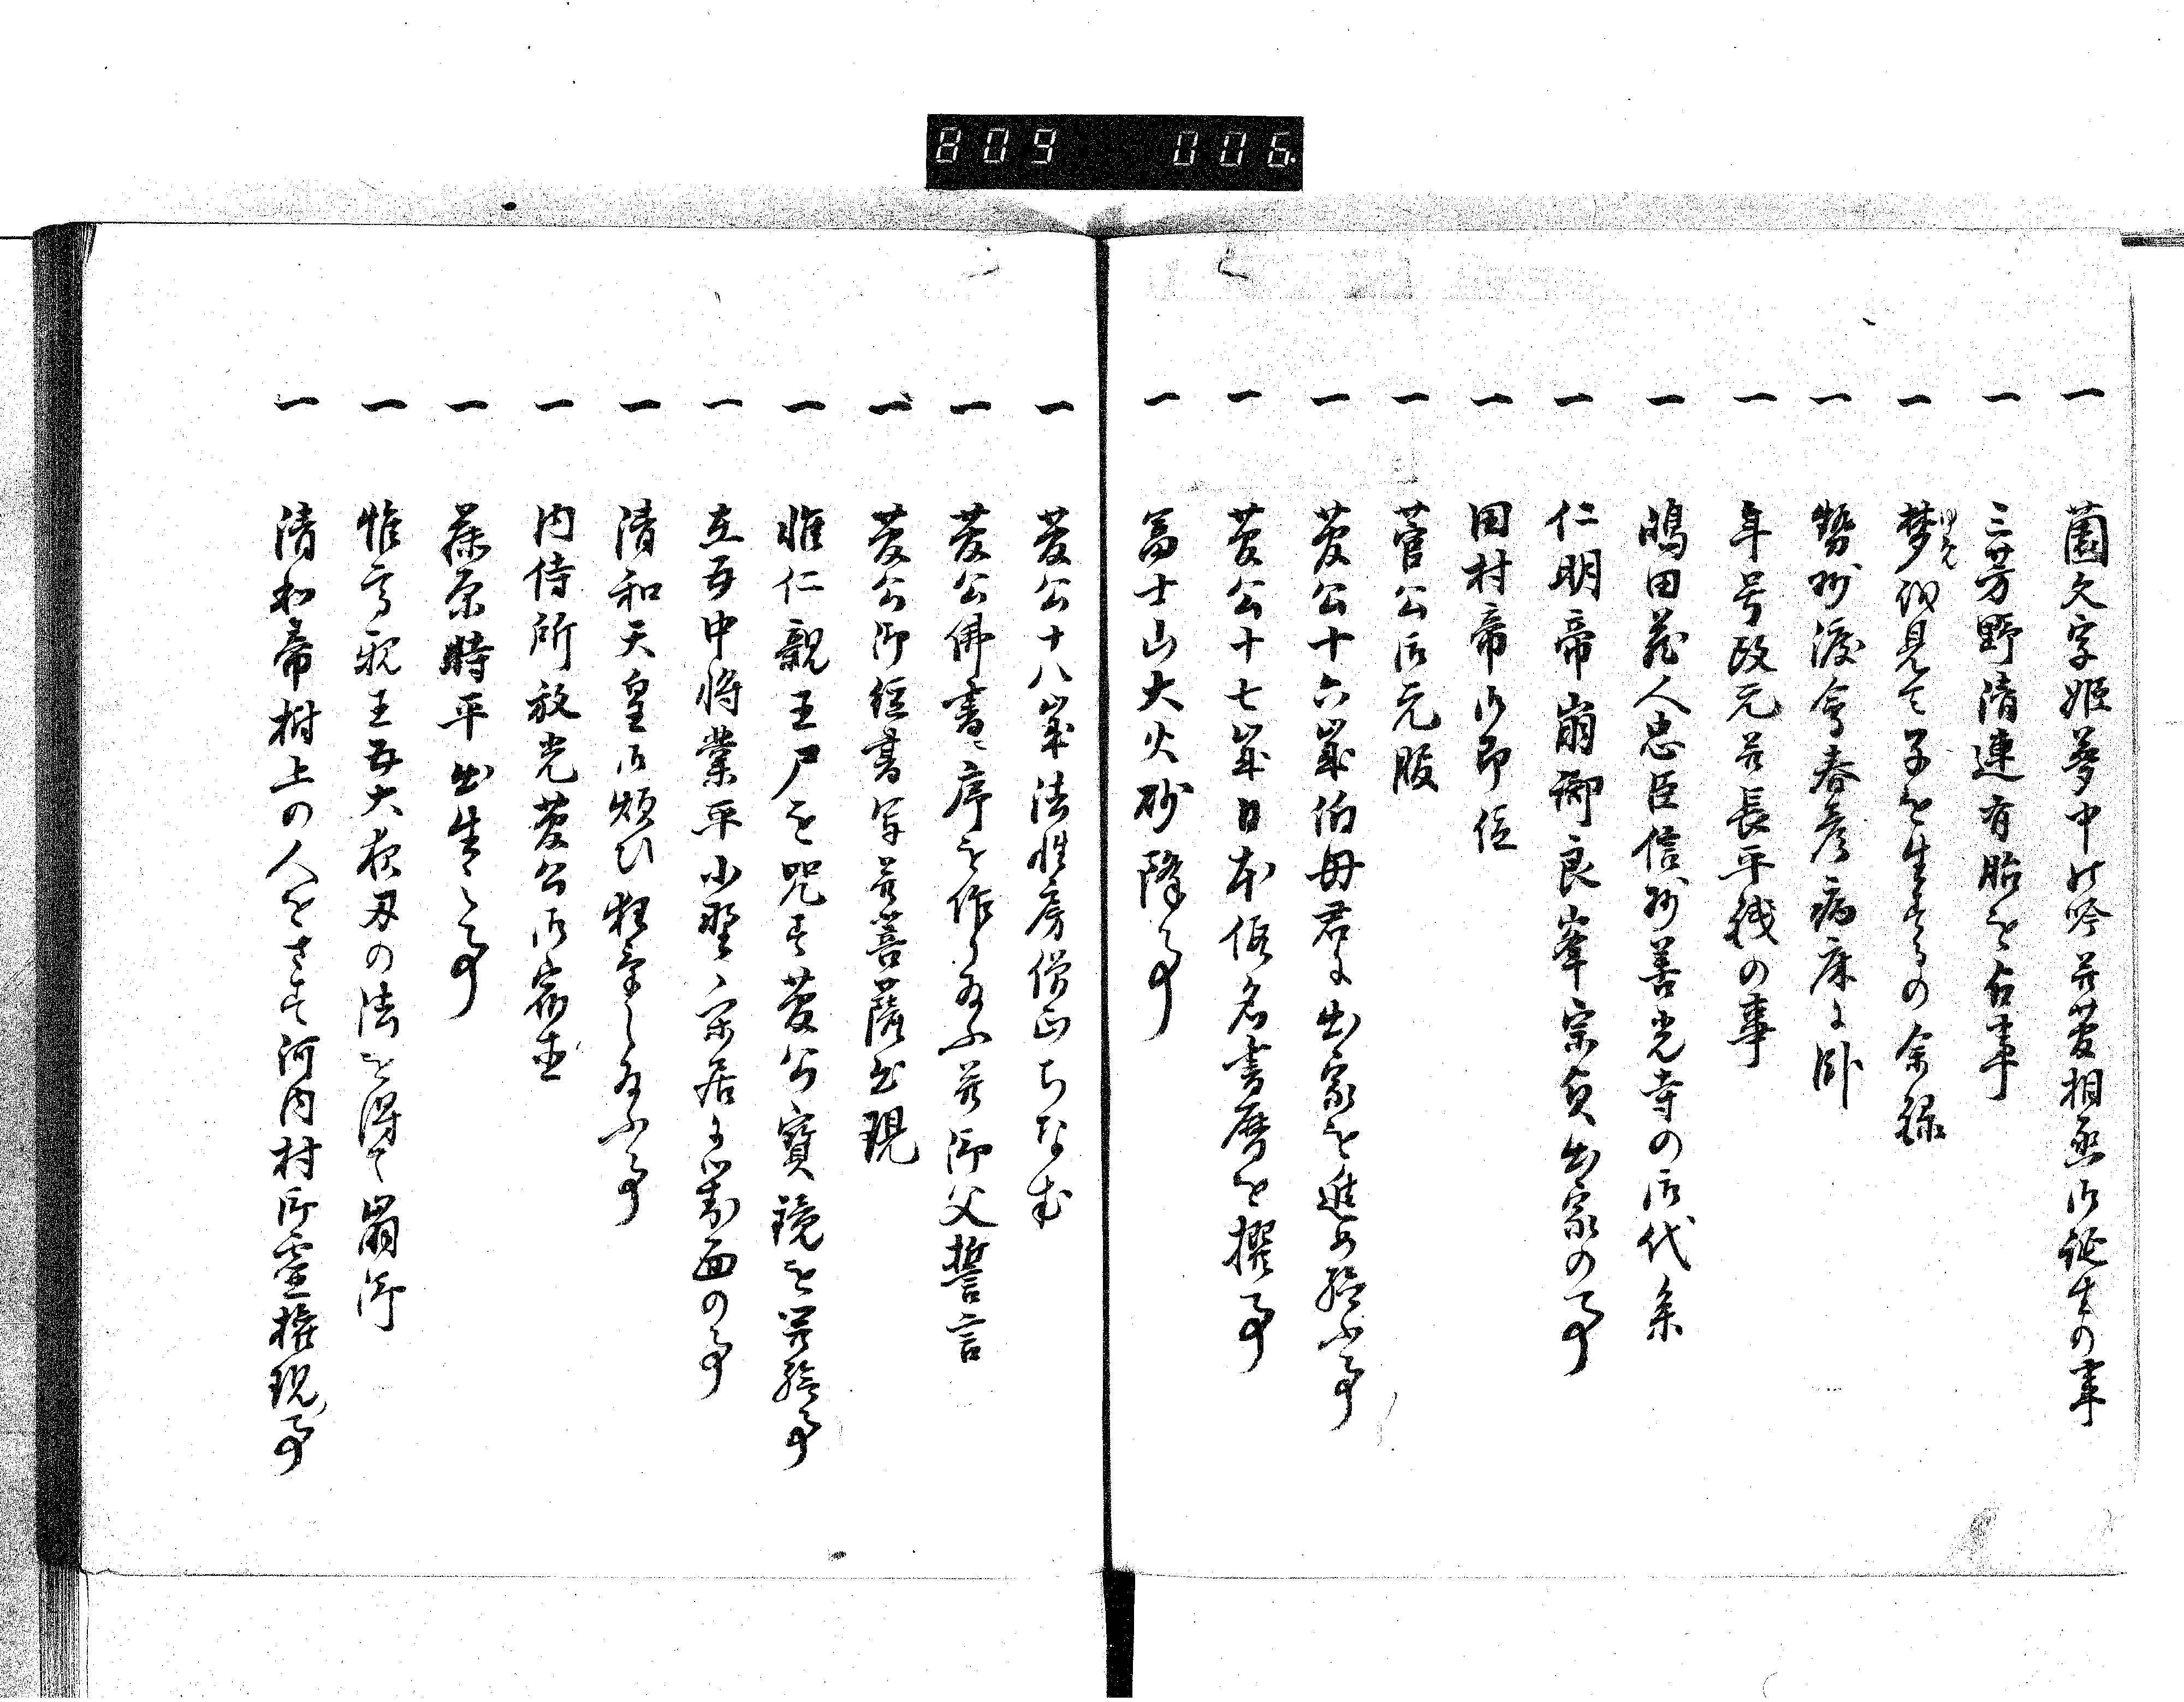 809 006
一 菌文字姫夢中の吟并菅相丞御誕生の事
一 三芳野清連有胎を占事
一 夢相見て子を生するの余録
一 勢州渡會春彦病床に臥
一 年号改元并長平銭の事
一 嶋田蔵人忠臣信州善光寺の御代参
一 仁明帝崩御良峯宗貞出家の事
一 田村帝御即位
一 菅公御元服
一 菅公十六歳伯母君に出家を進め給ふ事
一 菅公十七歳日本仮名書暦を撰事
一 冨士山大火砂降事
一 菅公十八歳法性房僧正ちなむ
一 菅公佛書に序を作り給ふ并御父誓言
一 菅公御経書写并菩薩出現
一 惟仁親王尸を咒す菅公寳鏡を以給事
一 在五中将業平小野に宗居に對面の事
一 清和天皇御煩ひ狂氣し給ふ事
一 内侍所放光菅公御宿直
一 藤原時平出生之事
一 惟高親王五大夜刃の法を得て崩御
一 清和帝樹上の人をさす河内村御霊権現事